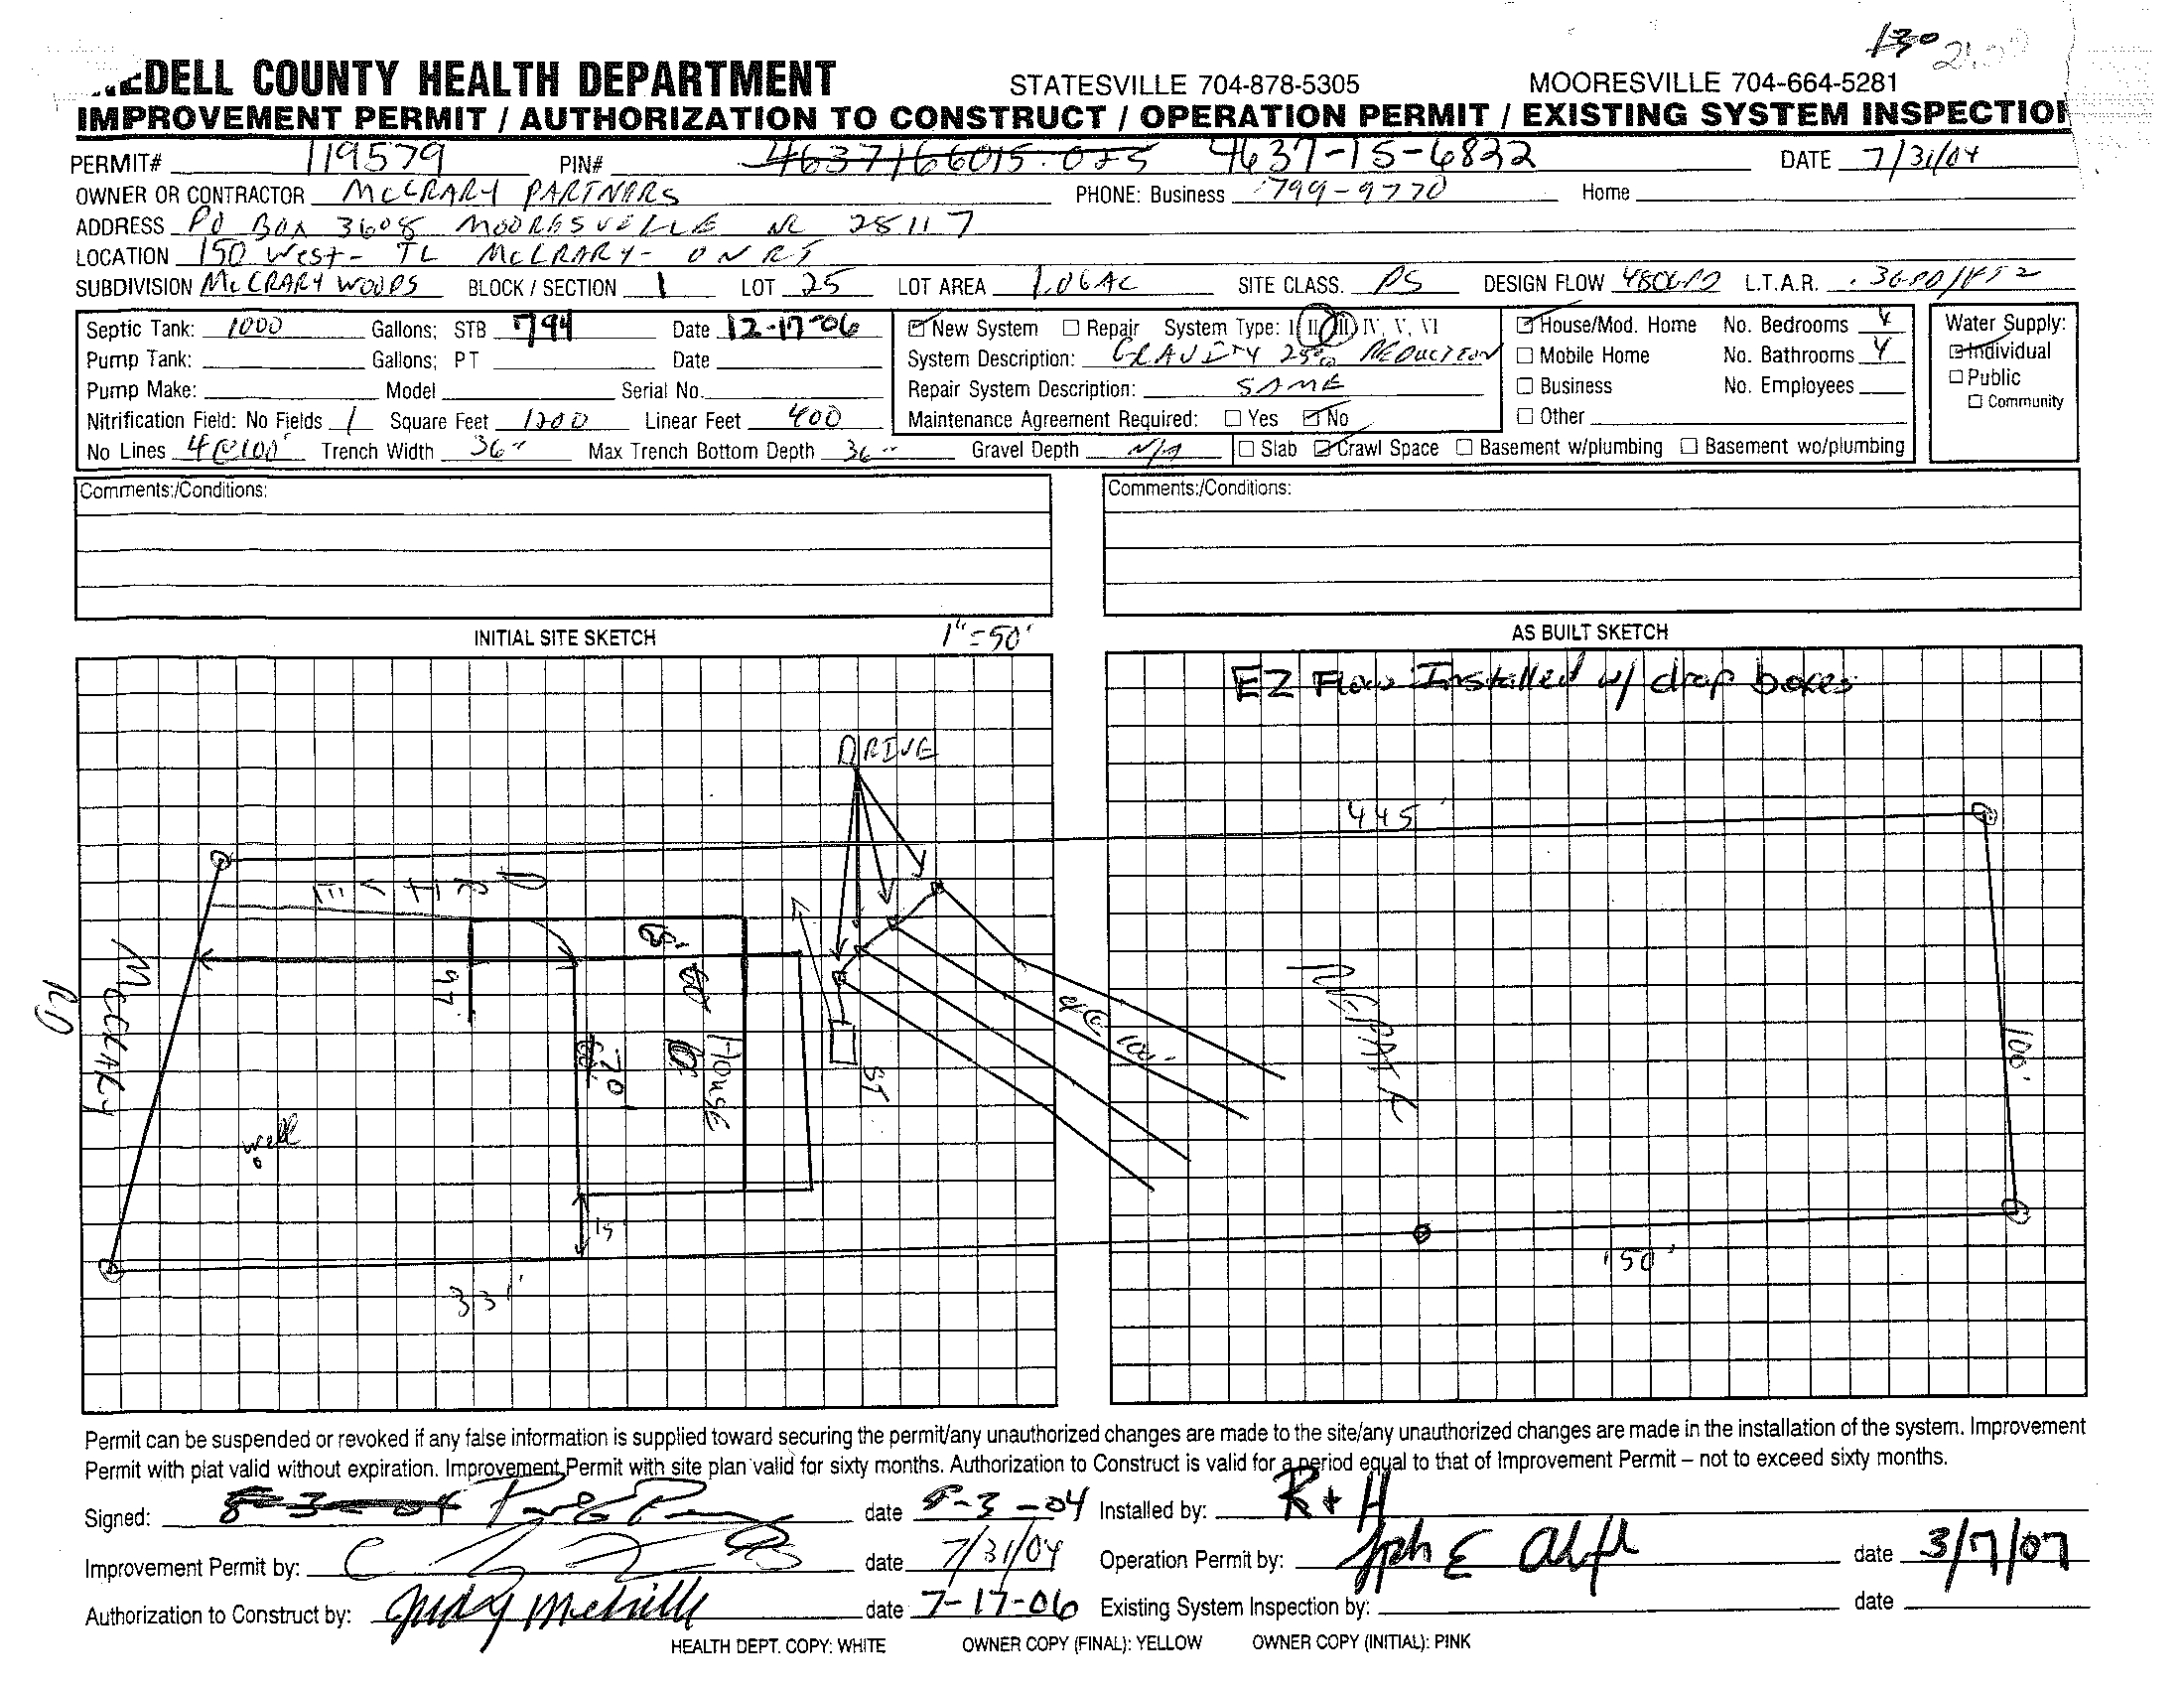 130
EDELL COUNTY HEALTH DEPARTMENT STATESVILLE 704-878-5305 MOORESVILLE 704-664-5281
IMPROVEMENT PERMIT / AUTHORIZATION TO CONSTRUCT / OPERATION PERMIT / EXISTING SYSTEM INSPECTION
PERMIT# 119579 PIN# 4637166015.025 4637-15-6822 DATE 7/31/04
OWNER OR CONTRACTOR McCRARY PARTNERS PHONE: Business 799-9770 Home
ADDRESS PO BOX 3608 MOORESVILLE NC 28117
LOCATION 150 West - TL McCRARY - ON RT
SUBDIVISION McCRARY WOODS BLOCK / SECTION 1 LOT 25 LOT AREA 1.06AC SITE CLASS. PS DESIGN FLOW 480GPD L.T.A.R. .3GPD/FT2
Septic Tank: 1000 Gallons; STB 794 Date 12-17-06
Pump Tank: Gallons; PT Date
Pump Make: Model Serial No.
Nitrification Field: No Fields 1 Square Feet 1200 Linear Feet 400
No Lines 4@100' Trench Width 36" Max Trench Bottom Depth 36" Gravel Depth N/A
New System Repair System Type: I II III IV, V, VI
System Description: GRAVITY 25% REDUCTION
Repair System Description: SAME
Maintenance Agreement Required: Yes No
Slab Crawl Space Basement w/plumbing Basement wo/plumbing
House/Mod. Home No. Bedrooms 4
Mobile Home No. Bathrooms 4
Business No. Employees
Other
Water Supply:
Individual
Public
Community
Comments:/Conditions:
Comments:/Conditions:
INITIAL SITE SKETCH 1"=50'
AS BUILT SKETCH
EZ Flow Installed w/ drop boxes
DRIVE
445'
DRIVE
McCRARY
RD
97
70'
House
ST
4@100'
REPAIR
100'
well
15
331'
150'
Permit can be suspended or revoked if any false information is supplied toward securing the permit/any unauthorized changes are made to the site/any unauthorized changes are made in the installation of the system. Improvement
Permit with plat valid without expiration. Improvement Permit with site plan valid for sixty months. Authorization to Construct is valid for a period equal to that of Improvement Permit – not to exceed sixty months.
Signed: 8-3-04 date 8-3-04 Installed by: R+H
Improvement Permit by: date 7/31/04 Operation Permit by: date 3/7/07
Authorization to Construct by: Judy date 7-17-06 Existing System Inspection by: date
HEALTH DEPT. COPY: WHITE OWNER COPY (FINAL): YELLOW OWNER COPY (INITIAL): PINK